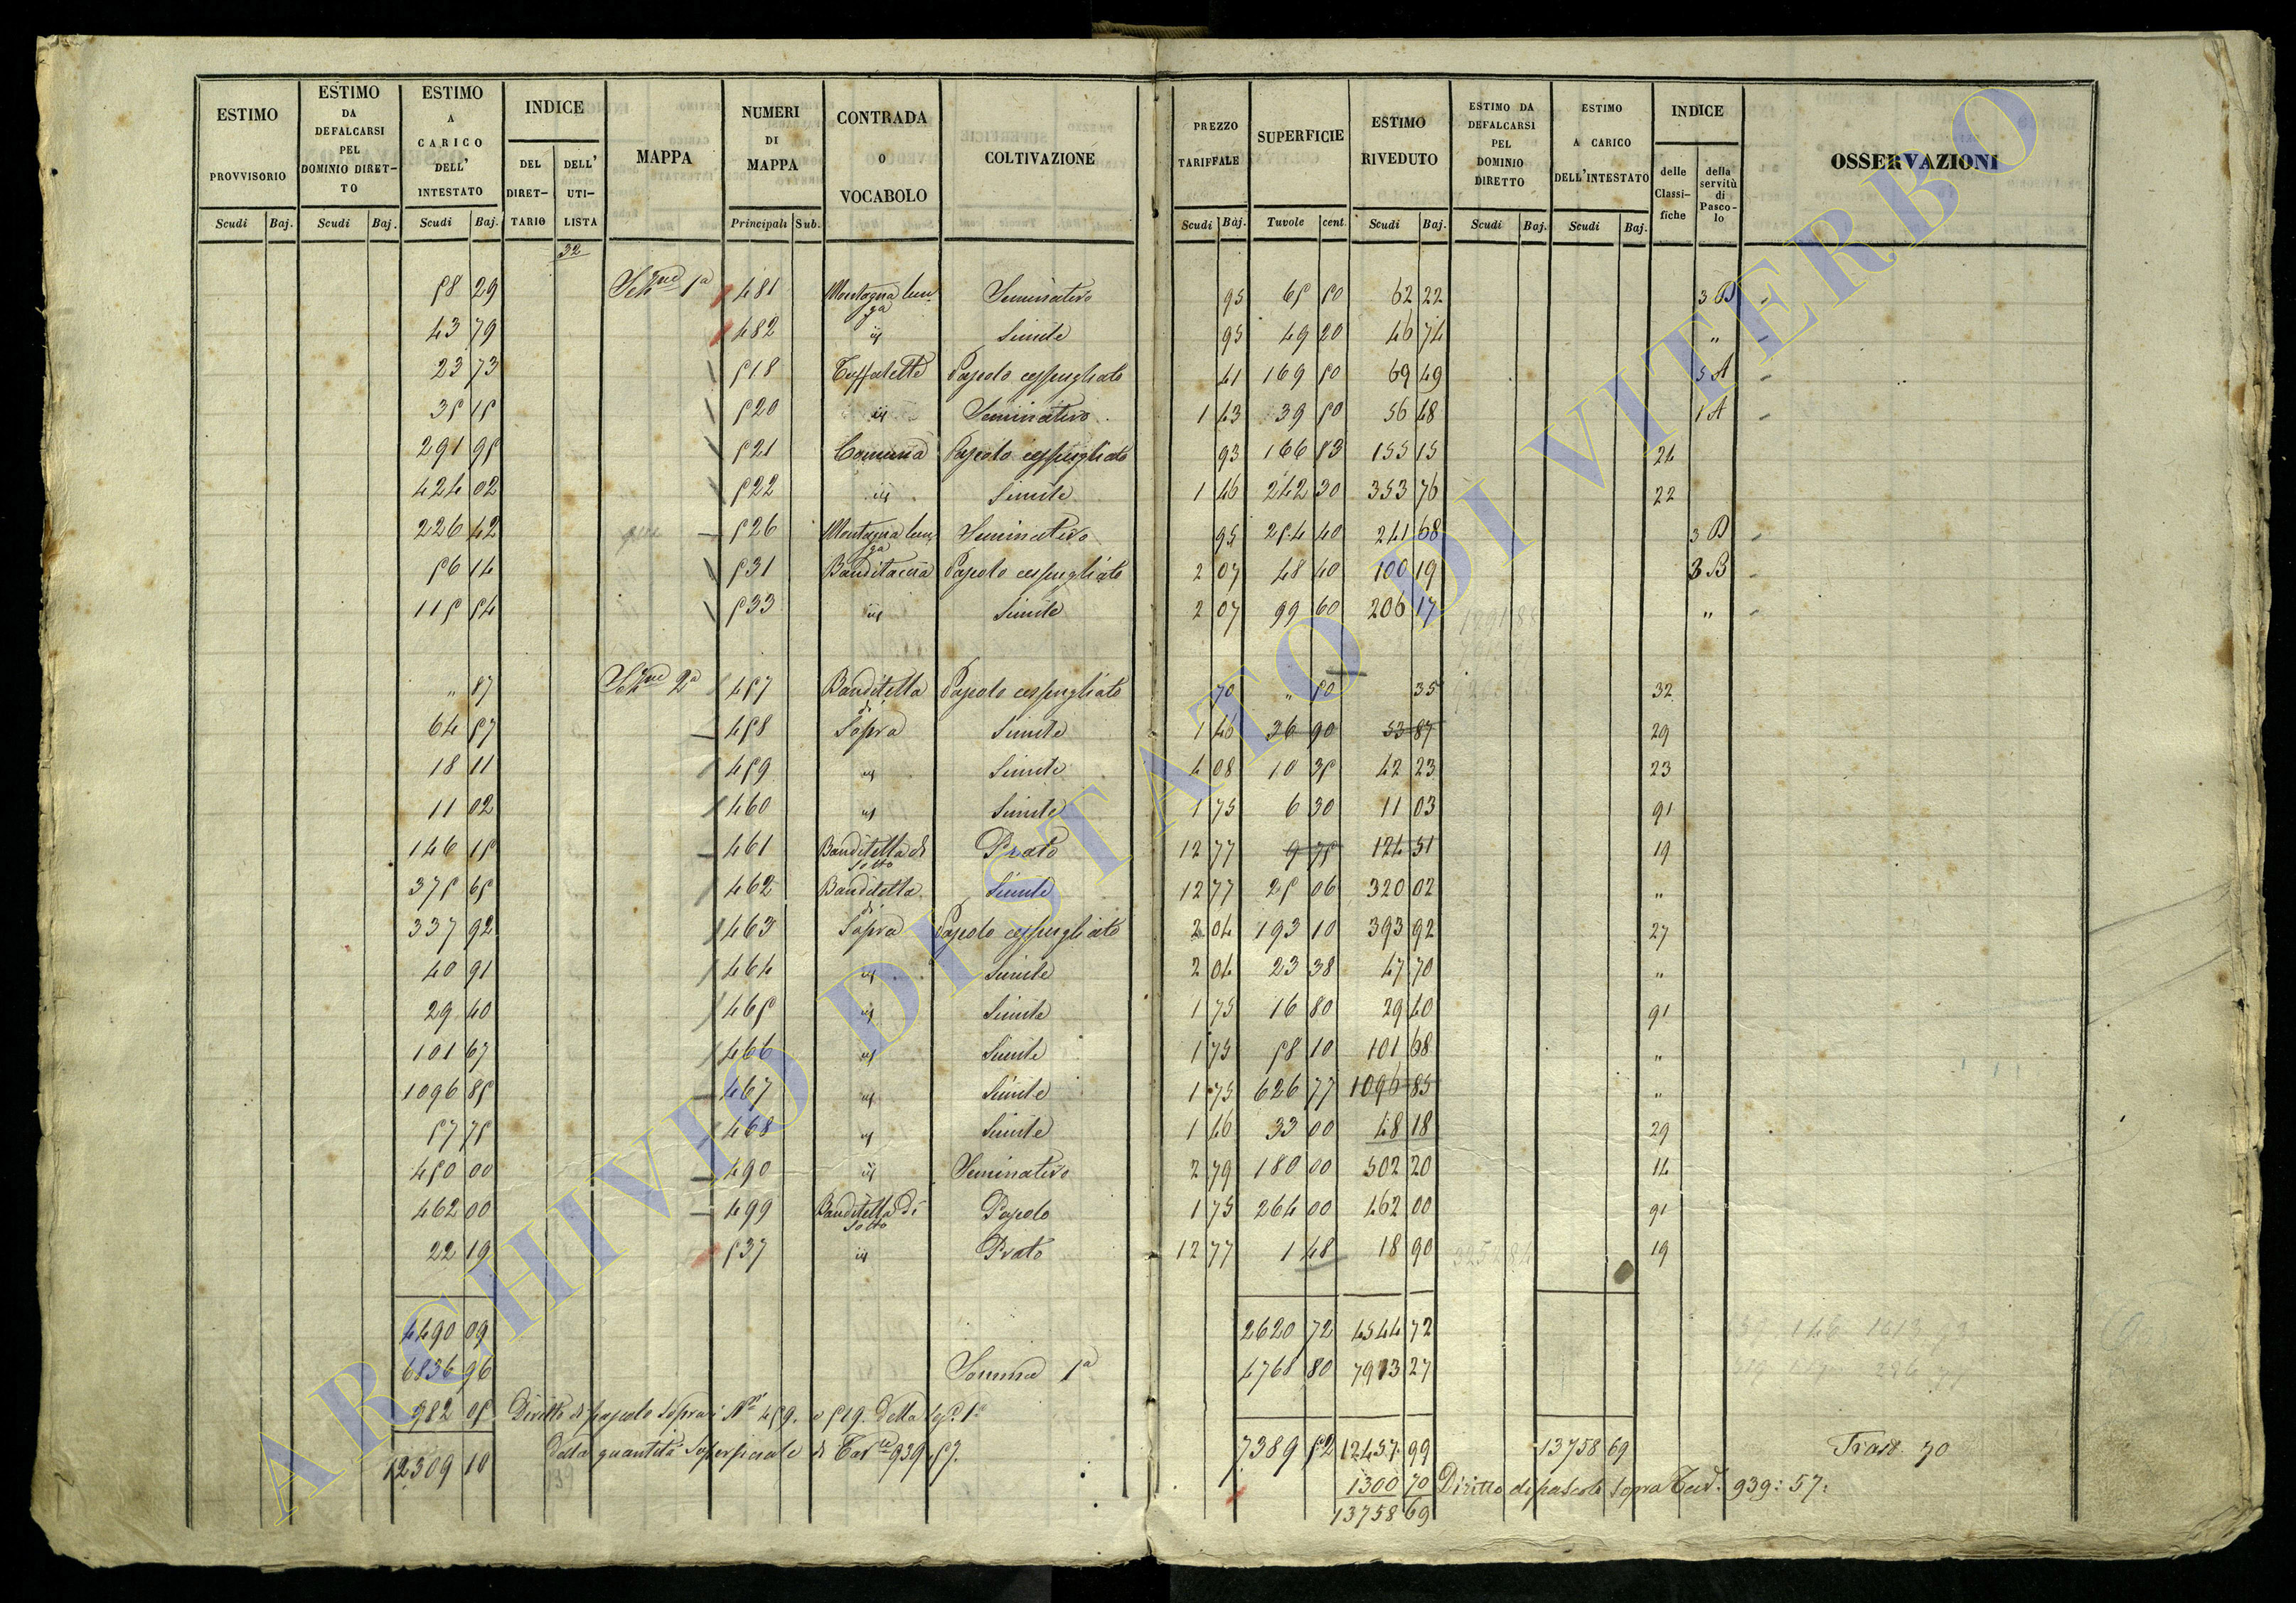 ESTIMO PROVVISORIO
ESTIMO DA DEFALCARSI PEL DOMINIO DIRET-TO
ESTIMO A CARICO DELL' INTESTATO
INDICE
DEL DIRET-TARIO
DELL' UTI-LISTA
MAPPA
NUMERI DI MAPPA
CONTRADA O VOCABOLO
COLTIVAZIONE
PREZZO TARIFFALE
SUPERFICIE
ESTIMO RIVEDUTO
ESTIMO DA DEFALCARSI PEL DOMINIO DIRETTO
ESTIMO A CARICO DELL'INTESTATO
INDICE
delle Classi-fiche
della servitù di Pasco-lo
OSSERVAZIONI
Scudi Baj. Scudi Baj. Scudi Baj. Principali Sub. Scudi Baj. Tavole cent. Scudi Baj. Scudi Baj. Scudi Baj.
32
58 29 Sezne 1a 481 Montagna lunga Seminativo 95 65 50 62 22 3 B
43 79 482 id Simile 95 49 20 46 74 "
23 73 518 Toffaletto Pascolo cespugliato 41 169 50 69 49 5 A
35 15 520 id Seminativo 1 43 39 50 56 48 1 A
291 95 521 Comuna Pascolo cespugliato 93 166 83 155 15 24
424 02 522 id Simile 1 46 242 30 353 76 22
226 42 526 Montagna lunga Seminativo 95 254 40 241 68 3 B
56 14 531 Banditaccia Pascolo cespugliato 2 07 48 40 100 19 3 B
115 54 533 id Simile 2 07 99 60 206 17 "
" 87 Sezne 2a 457 Banditella Pascolo cespugliato 70 " 50 35 32
64 57 458 di Sopra Simile 1 46 36 90 53 87 29
18 11 459 id Simile 4 08 10 35 42 23 23
11 02 460 id Simile 1 75 6 30 11 03 91
146 15 461 Banditella di Sotto Prato 12 77 9 75 124 51 19
375 65 462 Banditella Simile 12 77 25 06 320 02 "
337 92 463 di Sopra Pascolo cespugliato 2 04 193 10 393 92 27
40 91 464 id Simile 2 04 23 38 47 70 "
29 40 465 id Simile 1 75 16 80 29 40 91
101 67 466 id Simile 1 75 58 10 101 68 "
1096 85 467 id Simile 1 75 626 77 1096 85 "
57 75 468 id Simile 1 46 33 00 48 18 29
450 00 490 id Seminativo 2 79 180 00 502 20 14
462 00 499 Banditella di Sotto Pascolo 1 75 264 00 462 00 91
22 19 537 id Prato 12 77 1 48 18 90 19
4490 09 2620 72 4544 72
6836 96 Somma 1a 4768 80 7913 27
982 05 Diritto di pascolo sopra i Nri 459. e 519. della Sez. 1a
7389 52 12457 99 13758 69 Trasp. 70
12309 10 della quantità superficiale di Tavle 939.57.
1300 70 Diritto di pascolo sopra Tav. 939:57:
13758 69
ARCHIVIO DI STATO DI VITERBO